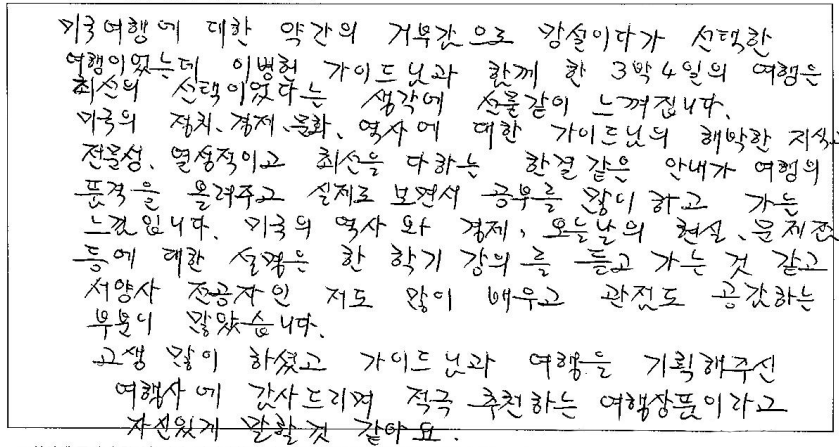 미국여행에 대한 약간의 거부감으로 망설이다가 선택한
여행이었는데 이병헌 가이드님과 함께 한 3박4일의 여행은
최선의 선택이었다는 생각에 선물같이 느껴집니다.
미국의 정치、경제、문화、역사에 대한 가이드님의 해박한 지식과
전문성、열성적이고 최선을 다하는 한결같은 안내가 여행의
품격을 올려주고 실제로 보면서 공부를 많이 하고 가는
느낌입니다. 미국의 역사와 경제, 오늘날의 현실、문제점
등에 대한 설명은 한 학기 강의를 듣고 가는 것 같고
서양사 전공자인 저도 많이 배우고 관점도 공감하는
부분이 많았습니다.
고생 많이 하셨고 가이드님과 여행을 기획해주신
여행사에 감사드리며 적극 추천하는 여행상품이라고
자신있게 말할 것 같아요.